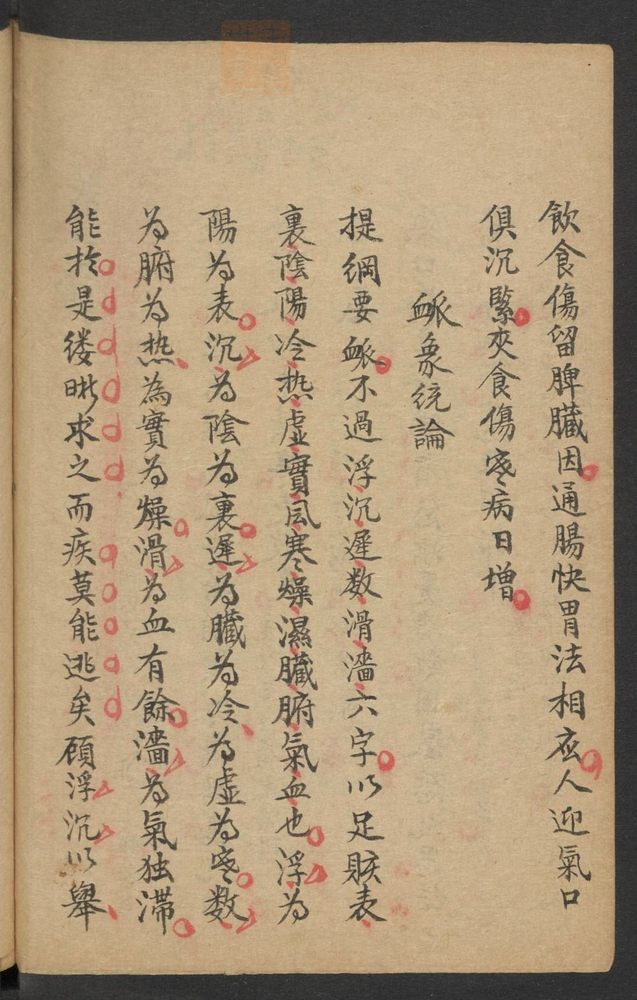 飲食傷留脾臟因通腸快胃法相应人迎氣口
俱沉緊夾食傷寒病日增
脈象統論
提綱要脈不過浮沉遲数滑濇六字以足賅表
裏陰陽冷热虛實風寒燥濕臟腑氣血也浮为
陽为表沉为陰为裏遲为臟为冷为虛为寒数
为腑为热為實为燥滑为血有餘濇为氣独滯
能於是缕晰求之而疾莫能逃矣顧浮沉以舉